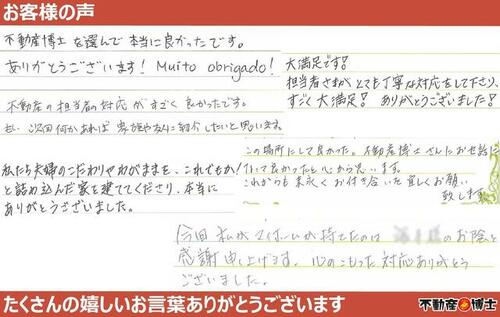 お客様の声
不動産博士を選んで本当に良かったです。
ありがとうございます! Muito obrigado!
不動産の担当者の対応がすごく良かったです。
もし次回何かあれば家族や友人に紹介したいと思います。
大満足です!
担当者さまがとても丁寧な対応をして下さり、
すごく大満足! ありがとうございました!
私たち夫婦のこだわりやわがままを、これでもか!
と詰め込んだ家を建ててくださり、本当に
ありがとうございました。
この場所にして良かった。不動産博士さんにお世話に
て良かったと心から思います。
これからも末永くお付き合い宜しくお願い
致します
今回 私がマイホームが持てたのは のお陰と
感謝申し上げます。心のこもった対応ありがとう
ございました。
たくさんの嬉しいお言葉ありがとうございます
不動産博士